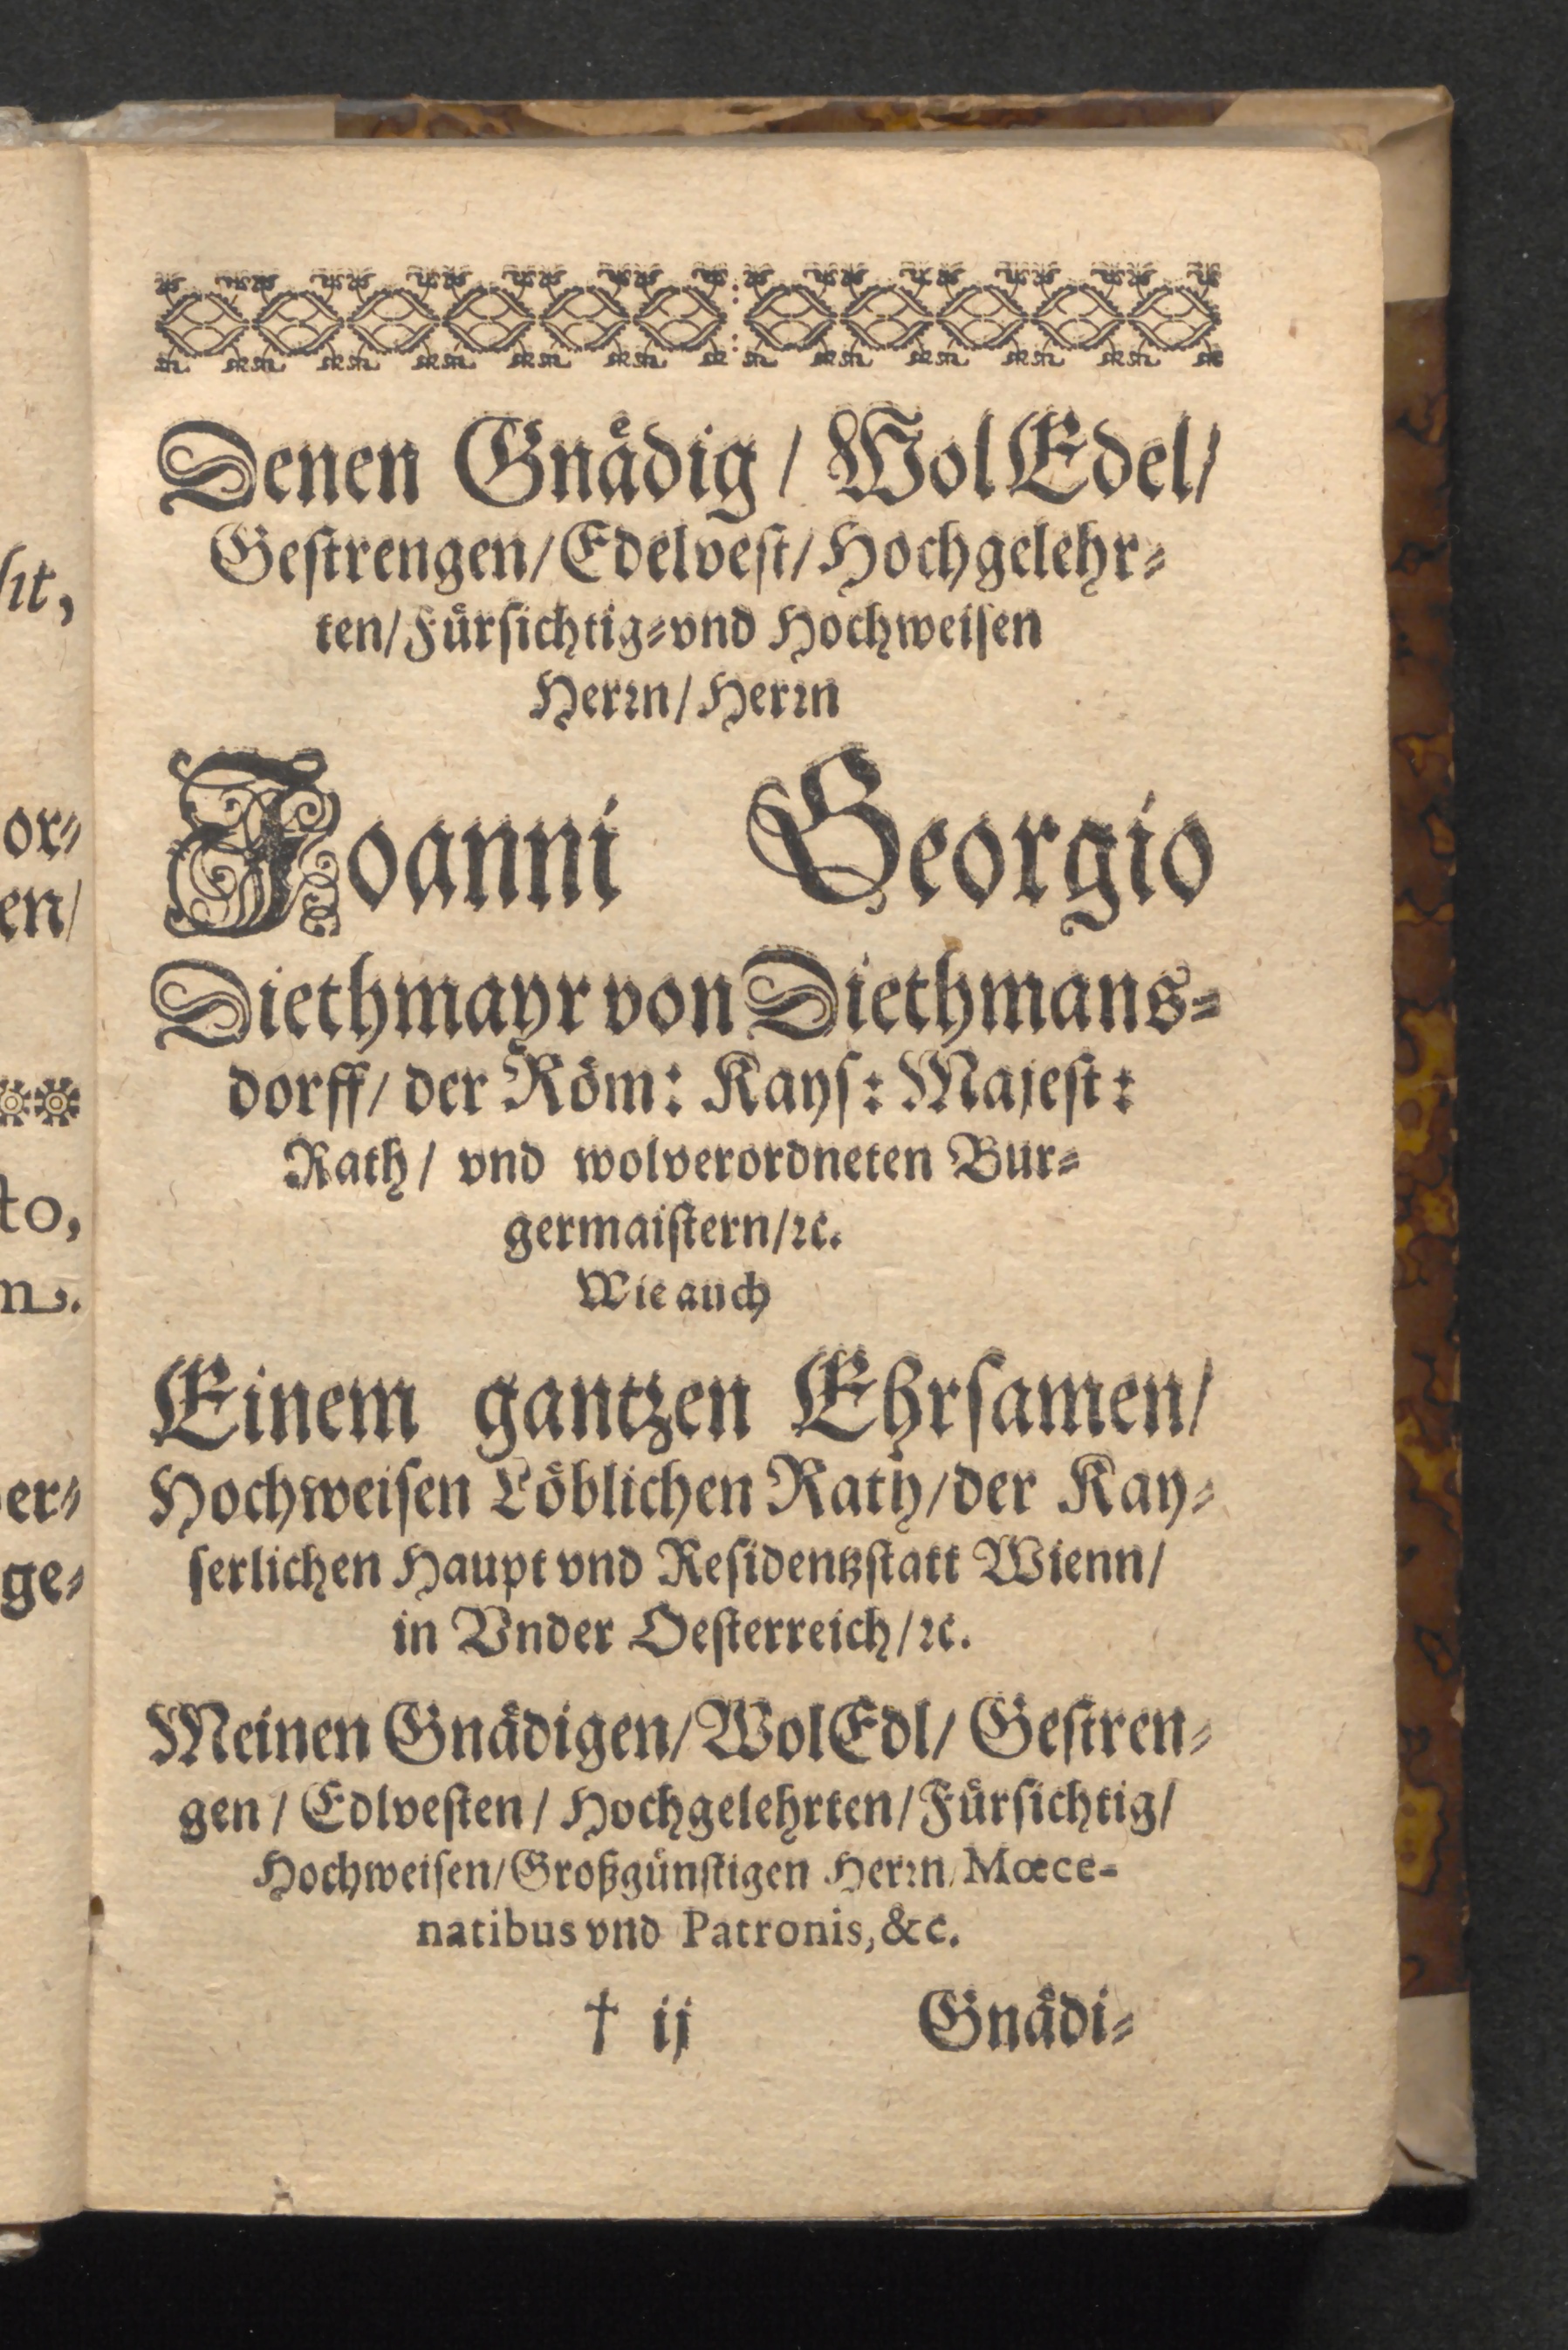 Denen Gnådig / Wol Edel/
Geſtrengen/Edelveſt/Hochgelehr⸗
ten/Fůrſichtig⸗vnd Hochweiſen
Herꝛn/Herꝛn
Joanni Georgio
Diethmayr von Diethmans⸗
dorff/ der Röm: Kayſ: Majeſt:
Rath/ vnd wolverordneten Bur⸗
germaiſtern/ꝛc.
Wie auch
Einem gantzen Ehrſamen/
Hochweiſen Löblichen Rath/der Kay⸗
ſerlichen Haupt vnd Reſidentzſtatt Wienn/
in Vnder Oeſterreich/ꝛc.
Meinen Gnådigen/WolEdl/ Geſtren⸗
gen / Edlveſten / Hochgelehrten/Fůrſichtig/
Hochweiſen/Großgůnſtigen Herꝛn/Mœce-
natibus vnd Patronis,&c.
† ij Gnådi⸗